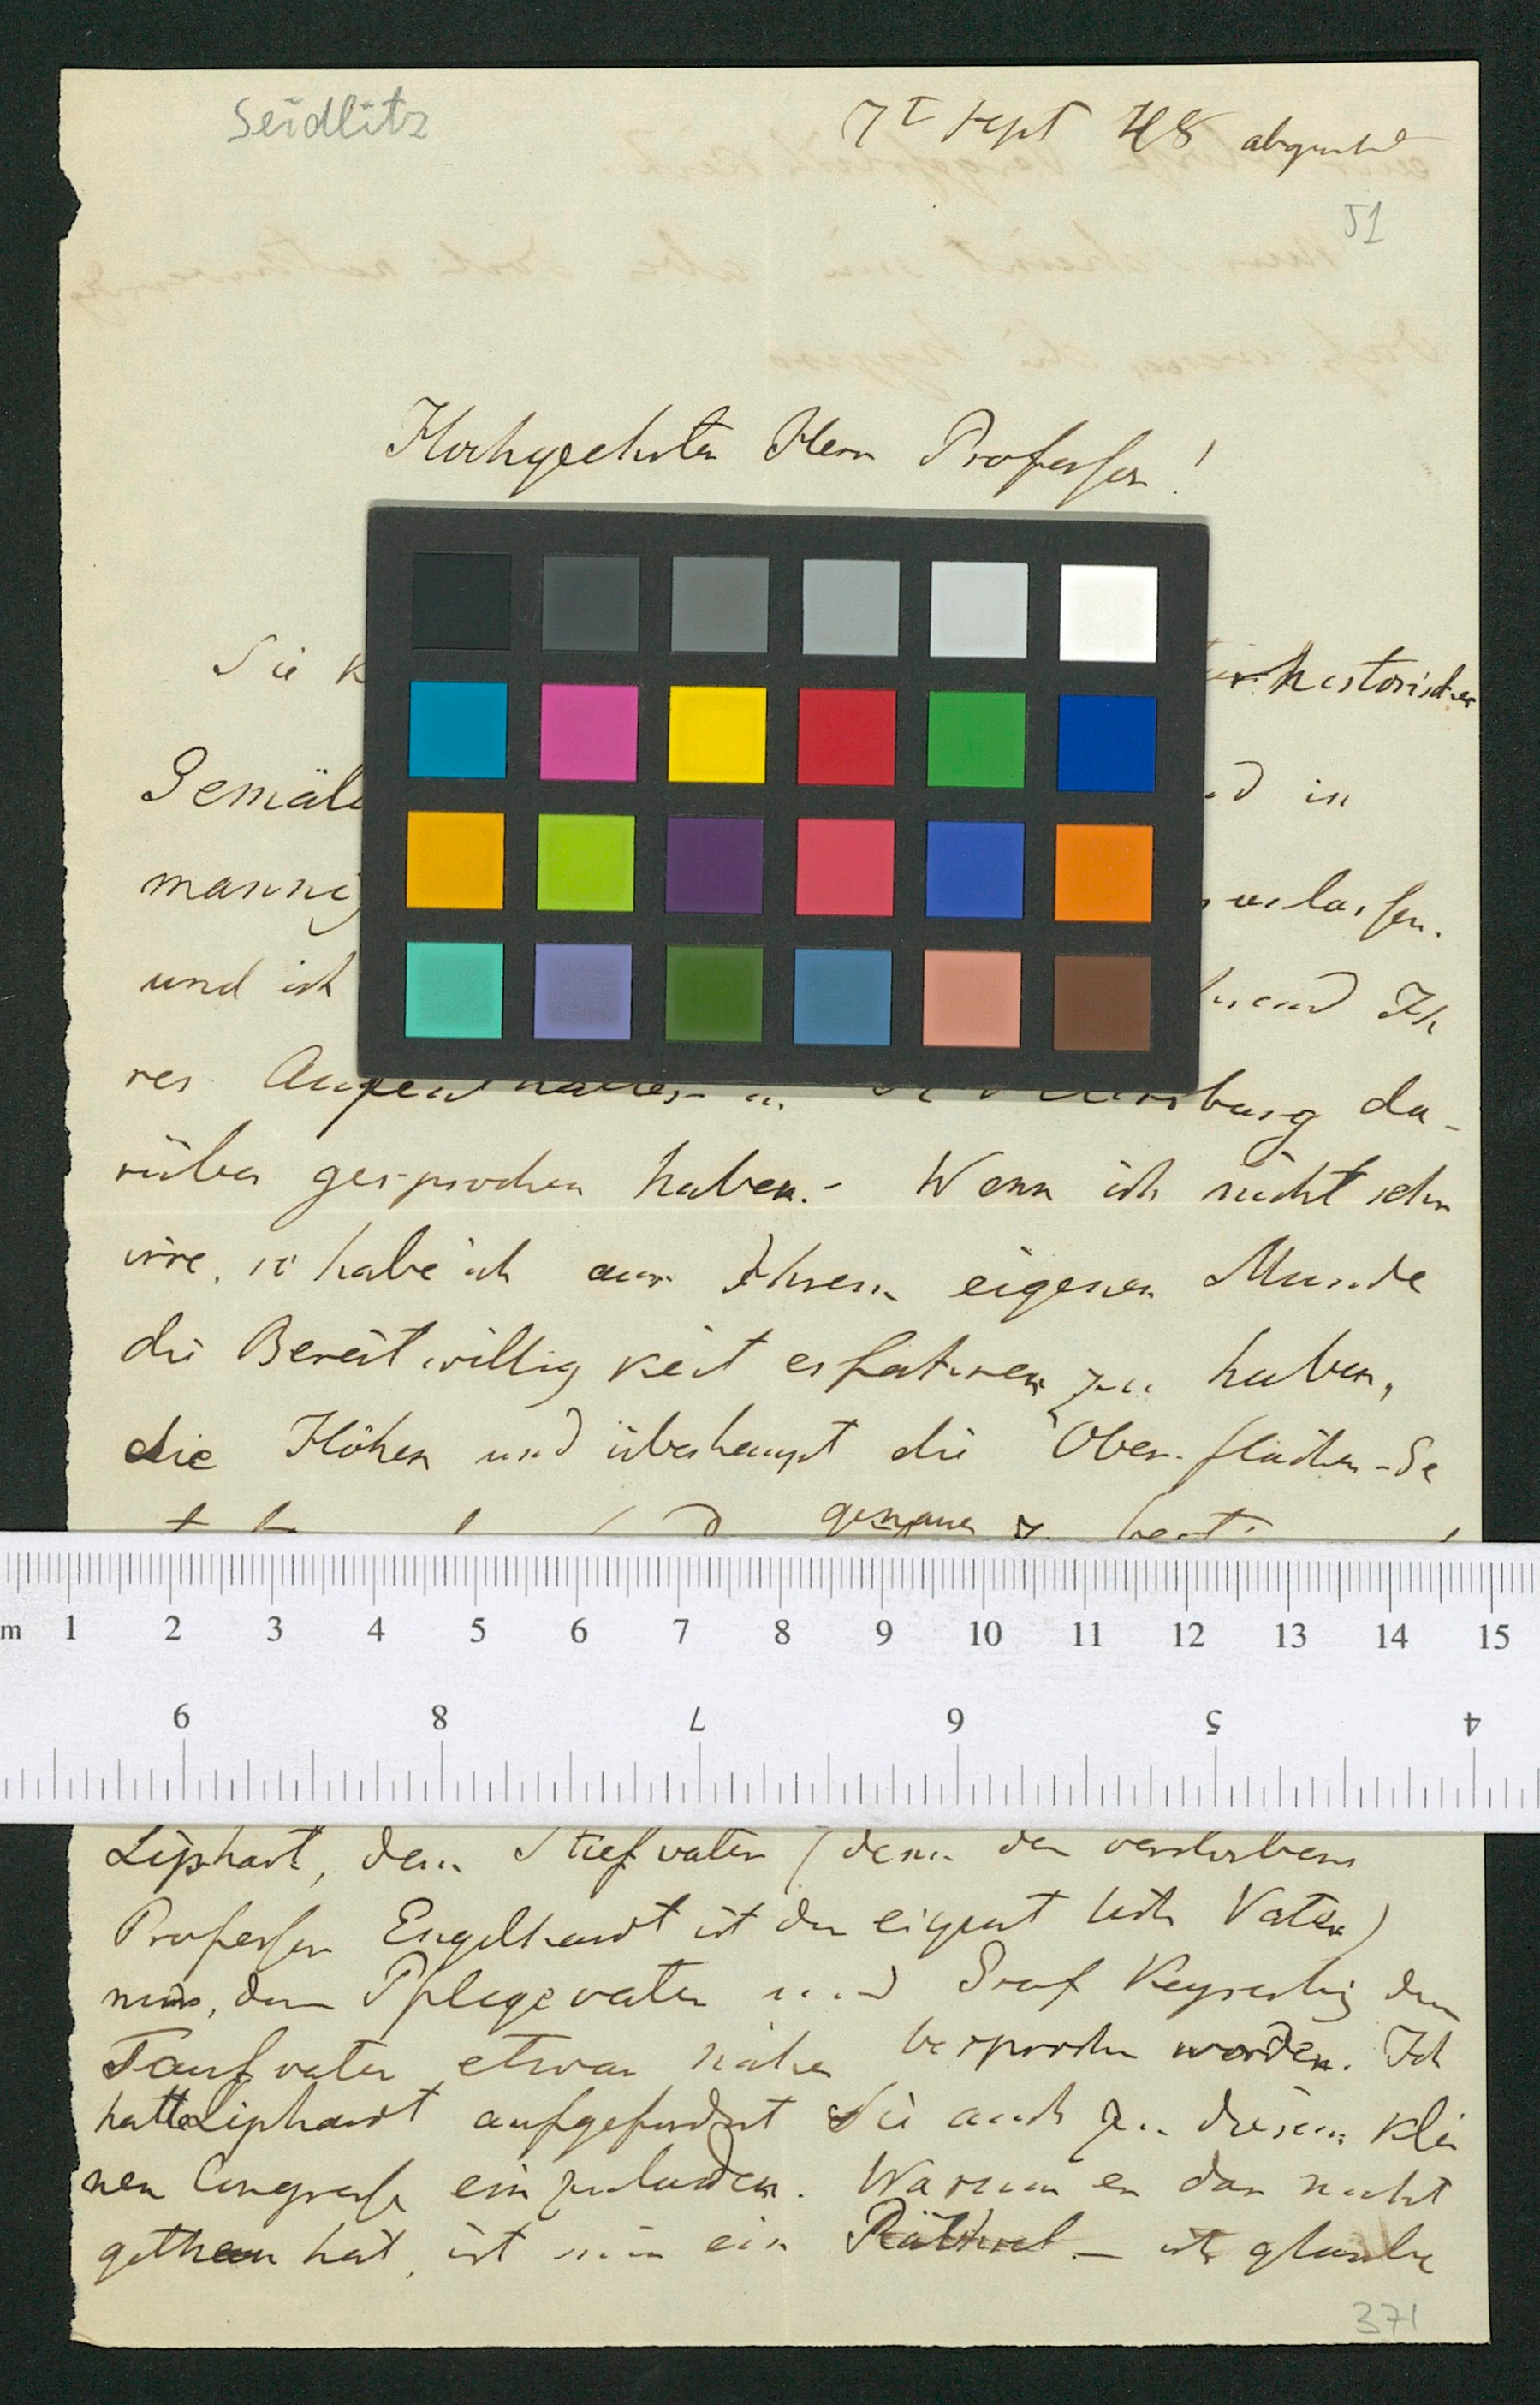 Seidlitz
7t Sept 48
51
Hochgeehrter Herr Professor!
Sie historischer
Gemäld in
mannig
und ich Ih
res Aufenthaltes in St Petersburg da-
rüber gesprochen haben.- Wenn ich nicht sehr
irre, so habe ich aus Ihrem eigenen Munde
die Bereitwilligkeit erfahren zu haben,
die Höhen und überhaupt die Oberflächen-Ge
genauer zu
m 1 2 3 4 5 6 7 8 9 10 11 12 13 14 15
9 8 7 6 5 4
Liphart, dem Stiefvater (denn der verstorbene
Professor Engelhardt ist der eigentliche Vater)
mir, dem Pflegevater und Graf Keyserling dem
Taufvater etwas näher besprochen worden. Ich
hatte Liphardt aufgefordert Sie auch zu diesem klei
nen Congresse einzuladen. Warum er das nicht
gethan hat, ist mir ein Räthsel - ich glaube
371